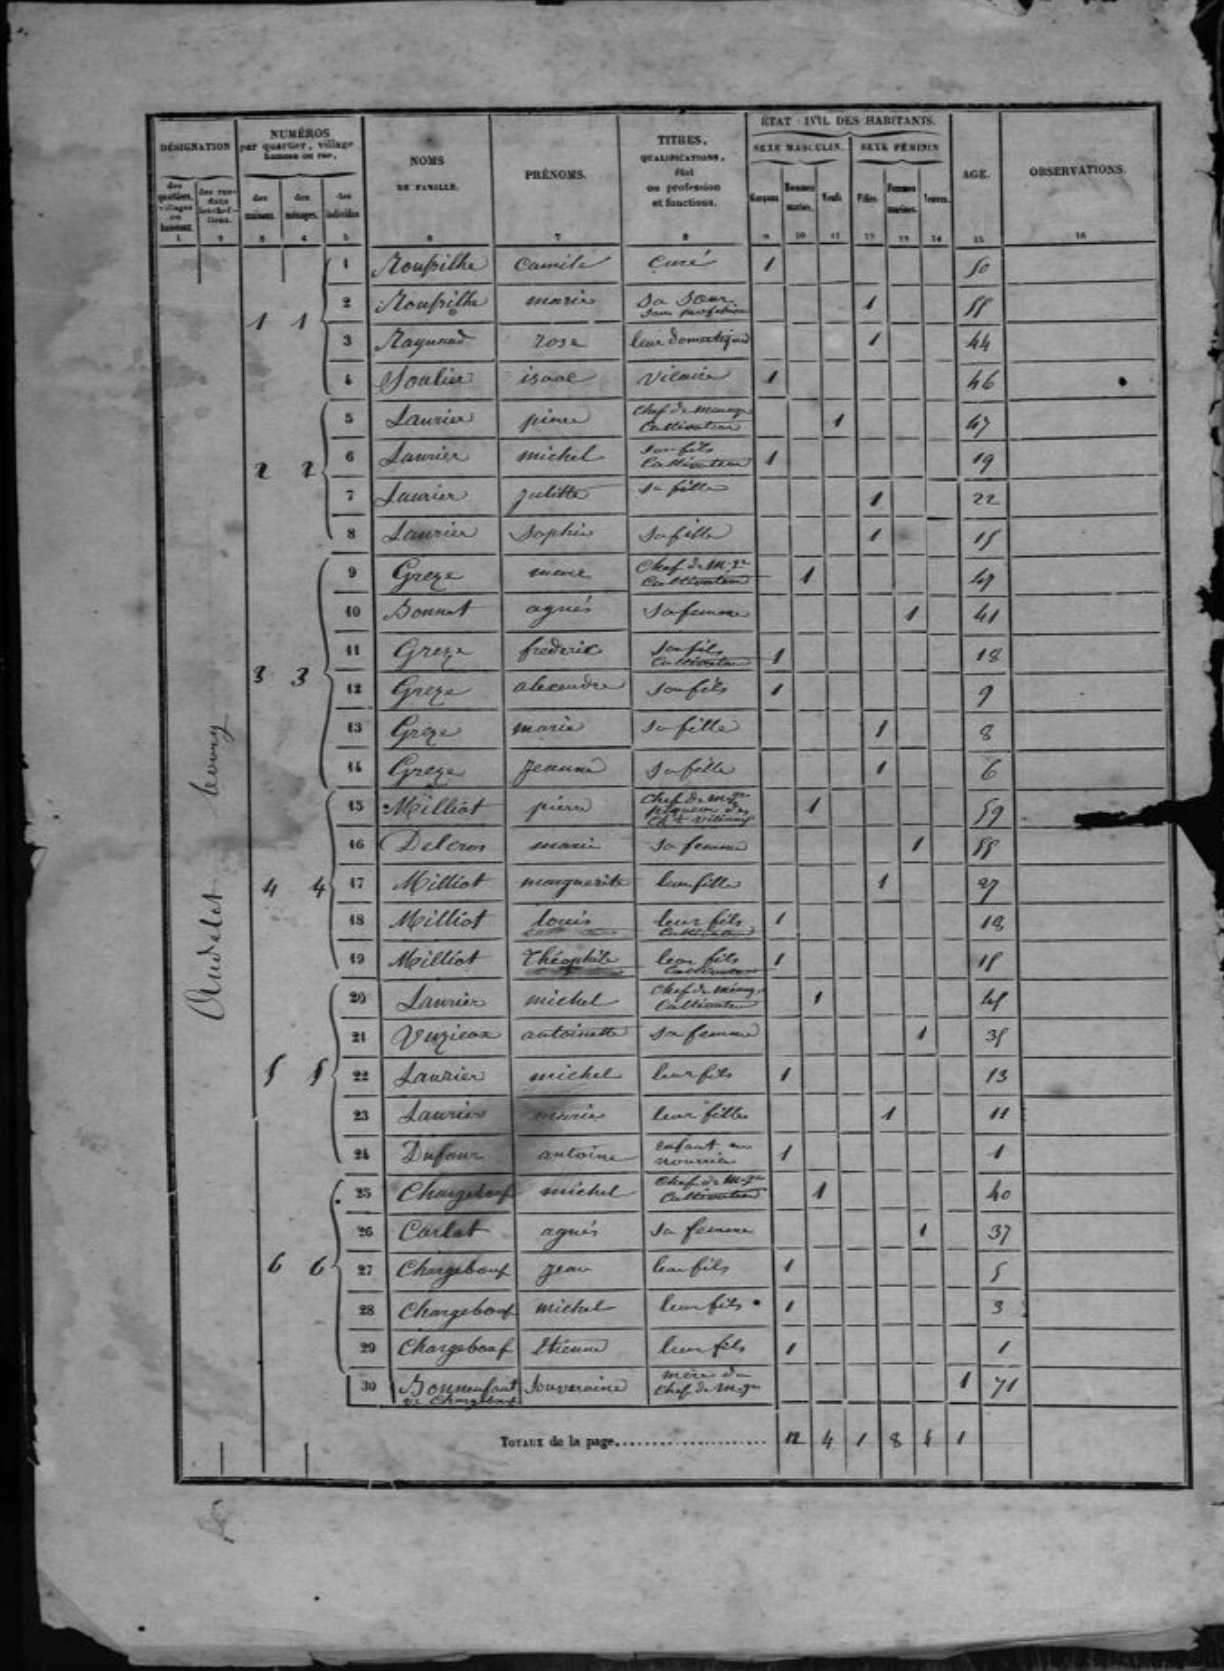 DÉSIGNATION
NUMÉROS
par quartier, village
hameau ou rue.
NOMS
DE FAMILLE.
PRÉNOMS.
TITRES,
QUALIFICATIONS,
état
ou profession
et fonctions.
ÉTAT CIVIL DES HABITANTS.
SEXE MASCULIN. SEXE FÉMININ
AGE.
OBSERVATIONS.
des quartiers, villages ou hameaux.
des rues dans
des maisons.
des ménages.
des individus
Garçons
Hommes mariés.
Veufs
Filles.
Femmes mariées.
Veuves.
1 2 3 4 5 6 7 8 9 10 11 12 13 14 15 16
Audelat bourg
1 1
1 Roussilhe Camile Curé 1 50
2 Roussilhe marie sa sœur sans profession 1 55
3 Raynaud rose leur domestique 1 44
4 Soulier isaac vicaire 1 46
2 2
5 Laurier pierre Chef de menage Cultivateur 1 47
6 Laurier michel son fils Cultivateur 1 19
7 Laurier juliette sa fille 1 22
8 Laurier Sophie sa fille 1 15
3 3
9 Greze Chef de m.ge Cultivateur 1
10 Bonnet agnés sa femme 1 41
11 Greze frederic son fils Cultivateur 1 18
12 Greze alexendre son fils 1 9
13 Greze marie sa fille 1 8
14 Greze jeanne sa fille 1 6
4 4
15 Milliot pierre Chef de m.ge 1 59
16 Delcros marie sa femme 1 55
17 Milliot marguerite leur fille 1 27
18 Milliot louis leur fils Cultivateur 1 18
19 Milliot Théophile leur fils Cultivateur 1 15
5 5
20 Laurier michel Chef de ménage Cultivateur 1 45
21 Vuzieux antoinette sa femme 1 35
22 Laurier michel leur fils 1 13
23 Laurier marie leur fille 1 11
24 Dufour antoine enfant en nourrice 1 1
6 6
25 Chargebouf michel Chef de m.ge Cultivateur 1 40
26 Carlat agnés sa femme 1 37
27 Chargebouf jean leur fils 1 5
28 Chargebouf michel leur fils 1 3
29 Chargebouf Etienne leur fils 1 1
30 Bonnenfant ve Chargebouf Souveraine mère du Chef de m.ge 1 71
TOTAUX de la page 12 4 1 8 4 1